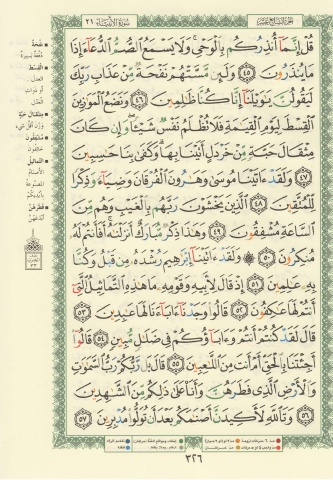 الجزء السابع عشر
سورة الأنبياء ٢١
قُلْ إِنَّمَا أُنذِرُكُم بِالْوَحْيِ وَلَا يَسْمَعُ الصُّمُّ الدُّعَاءَ إِذَا
مَا يُنذَرُونَ ٤٥ وَلَئِن مَّسَّتْهُمْ نَفْحَةٌ مِّنْ عَذَابِ رَبِّكَ
لَيَقُولُنَّ يَٰوَيْلَنَا إِنَّا كُنَّا ظَٰلِمِينَ ٤٦ وَنَضَعُ الْمَوَٰزِينَ
الْقِسْطَ لِيَوْمِ الْقِيَٰمَةِ فَلَا تُظْلَمُ نَفْسٌ شَيْـًٔا وَإِن كَانَ
مِثْقَالَ حَبَّةٍ مِّنْ خَرْدَلٍ أَتَيْنَا بِهَا وَكَفَىٰ بِنَا حَٰسِبِينَ
٤٧ وَلَقَدْ ءَاتَيْنَا مُوسَىٰ وَهَٰرُونَ الْفُرْقَانَ وَضِيَاءً وَذِكْرًا
لِّلْمُتَّقِينَ ٤٨ الَّذِينَ يَخْشَوْنَ رَبَّهُم بِالْغَيْبِ وَهُم مِّنَ
السَّاعَةِ مُشْفِقُونَ ٤٩ وَهَٰذَا ذِكْرٌ مُّبَارَكٌ أَنزَلْنَٰهُ أَفَأَنتُمْ لَهُ
مُنكِرُونَ ٥٠ وَلَقَدْ ءَاتَيْنَا إِبْرَٰهِيمَ رُشْدَهُ مِن قَبْلُ وَكُنَّا
بِهِ عَٰلِمِينَ ٥١ إِذْ قَالَ لِأَبِيهِ وَقَوْمِهِ مَا هَٰذِهِ التَّمَاثِيلُ الَّتِي
أَنتُمْ لَهَا عَٰكِفُونَ ٥٢ قَالُوا وَجَدْنَا ءَابَاءَنَا لَهَا عَٰبِدِينَ ٥٣
قَالَ لَقَدْ كُنتُمْ أَنتُمْ وَءَابَاؤُكُمْ فِي ضَلَٰلٍ مُّبِينٍ ٥٤ قَالُوا
أَجِئْتَنَا بِالْحَقِّ أَمْ أَنتَ مِنَ اللَّٰعِبِينَ ٥٥ قَالَ بَل رَّبُّكُمْ رَبُّ السَّمَٰوَٰتِ
وَالْأَرْضِ الَّذِي فَطَرَهُنَّ وَأَنَا عَلَىٰ ذَٰلِكُم مِّنَ الشَّٰهِدِينَ
٥٦ وَتَاللَّهِ لَأَكِيدَنَّ أَصْنَٰمَكُم بَعْدَ أَن تُوَلُّوا مُدْبِرِينَ ٥٧
٣٢٦
نفحة
القسط
العدل
مثقال حبة
مشفقون
خائفون
التماثيل
الأصنام
فطرهن